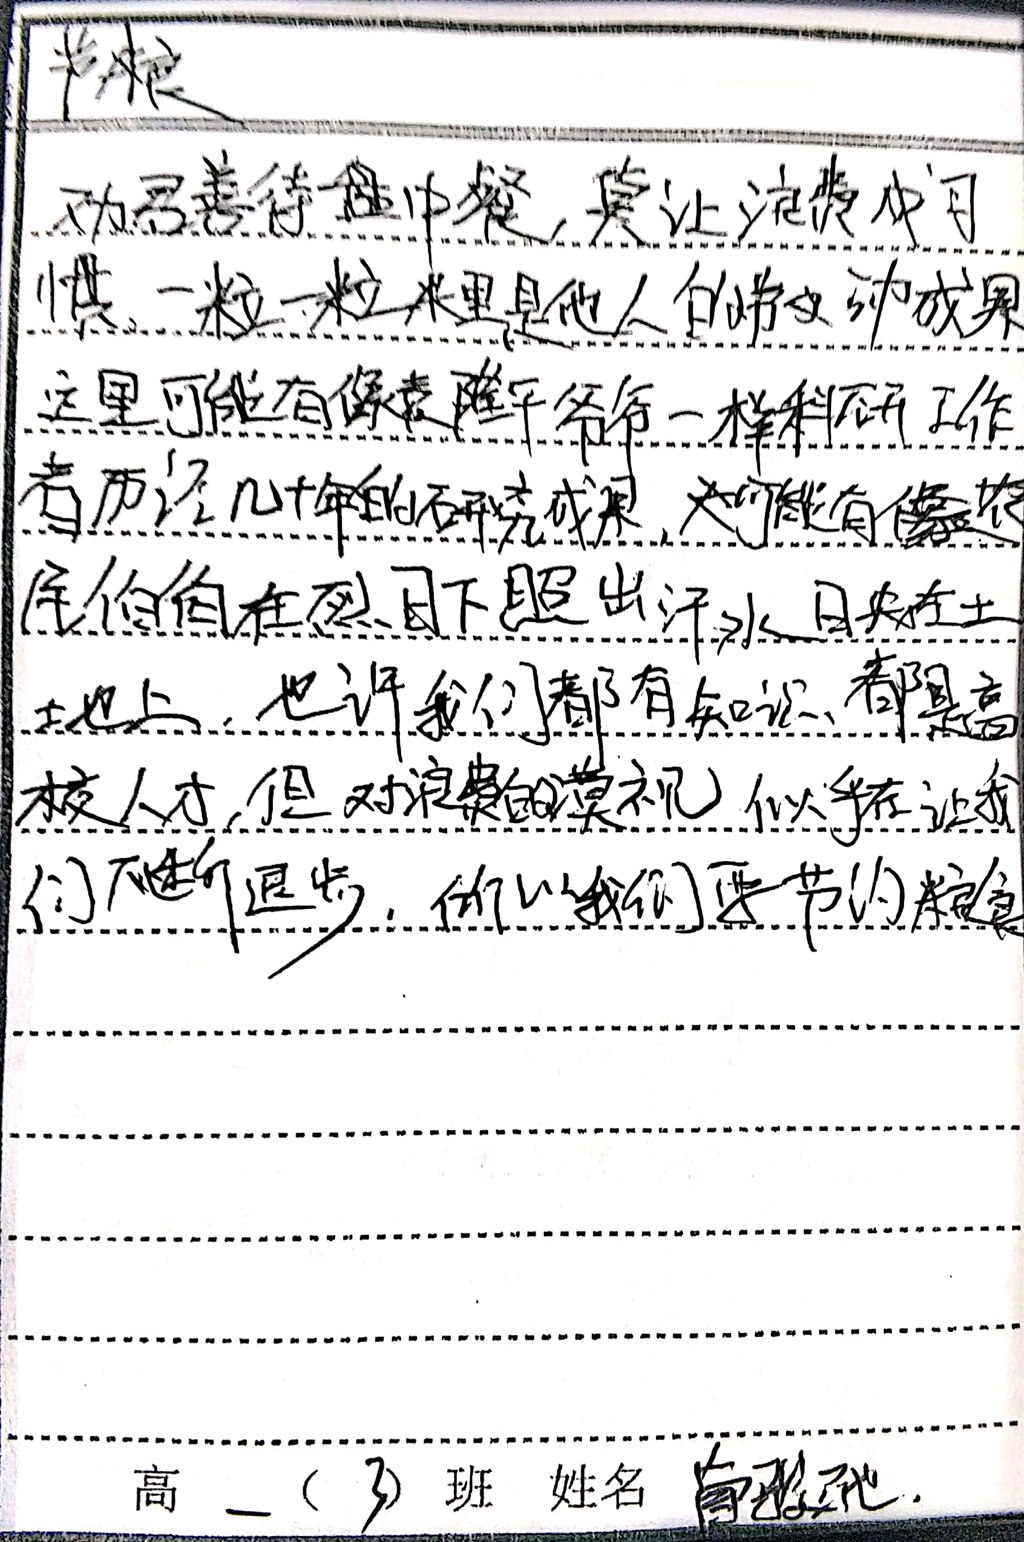 节粮
劝君善待盘中餐，莫让浪费成习
惯、一粒一粒米里是他人的劳动成果
这里可能有像袁隆平爷爷一样科研工作
者历经几十年的研究成果，也可能有像农
民伯伯在烈日下照出汗水日夜在土
土地上，也许我们都有知识、都是高
校人才，但对浪费的漠视似乎在让我
们不断退步，所以我们要节约粮食
高一（3）班 姓名